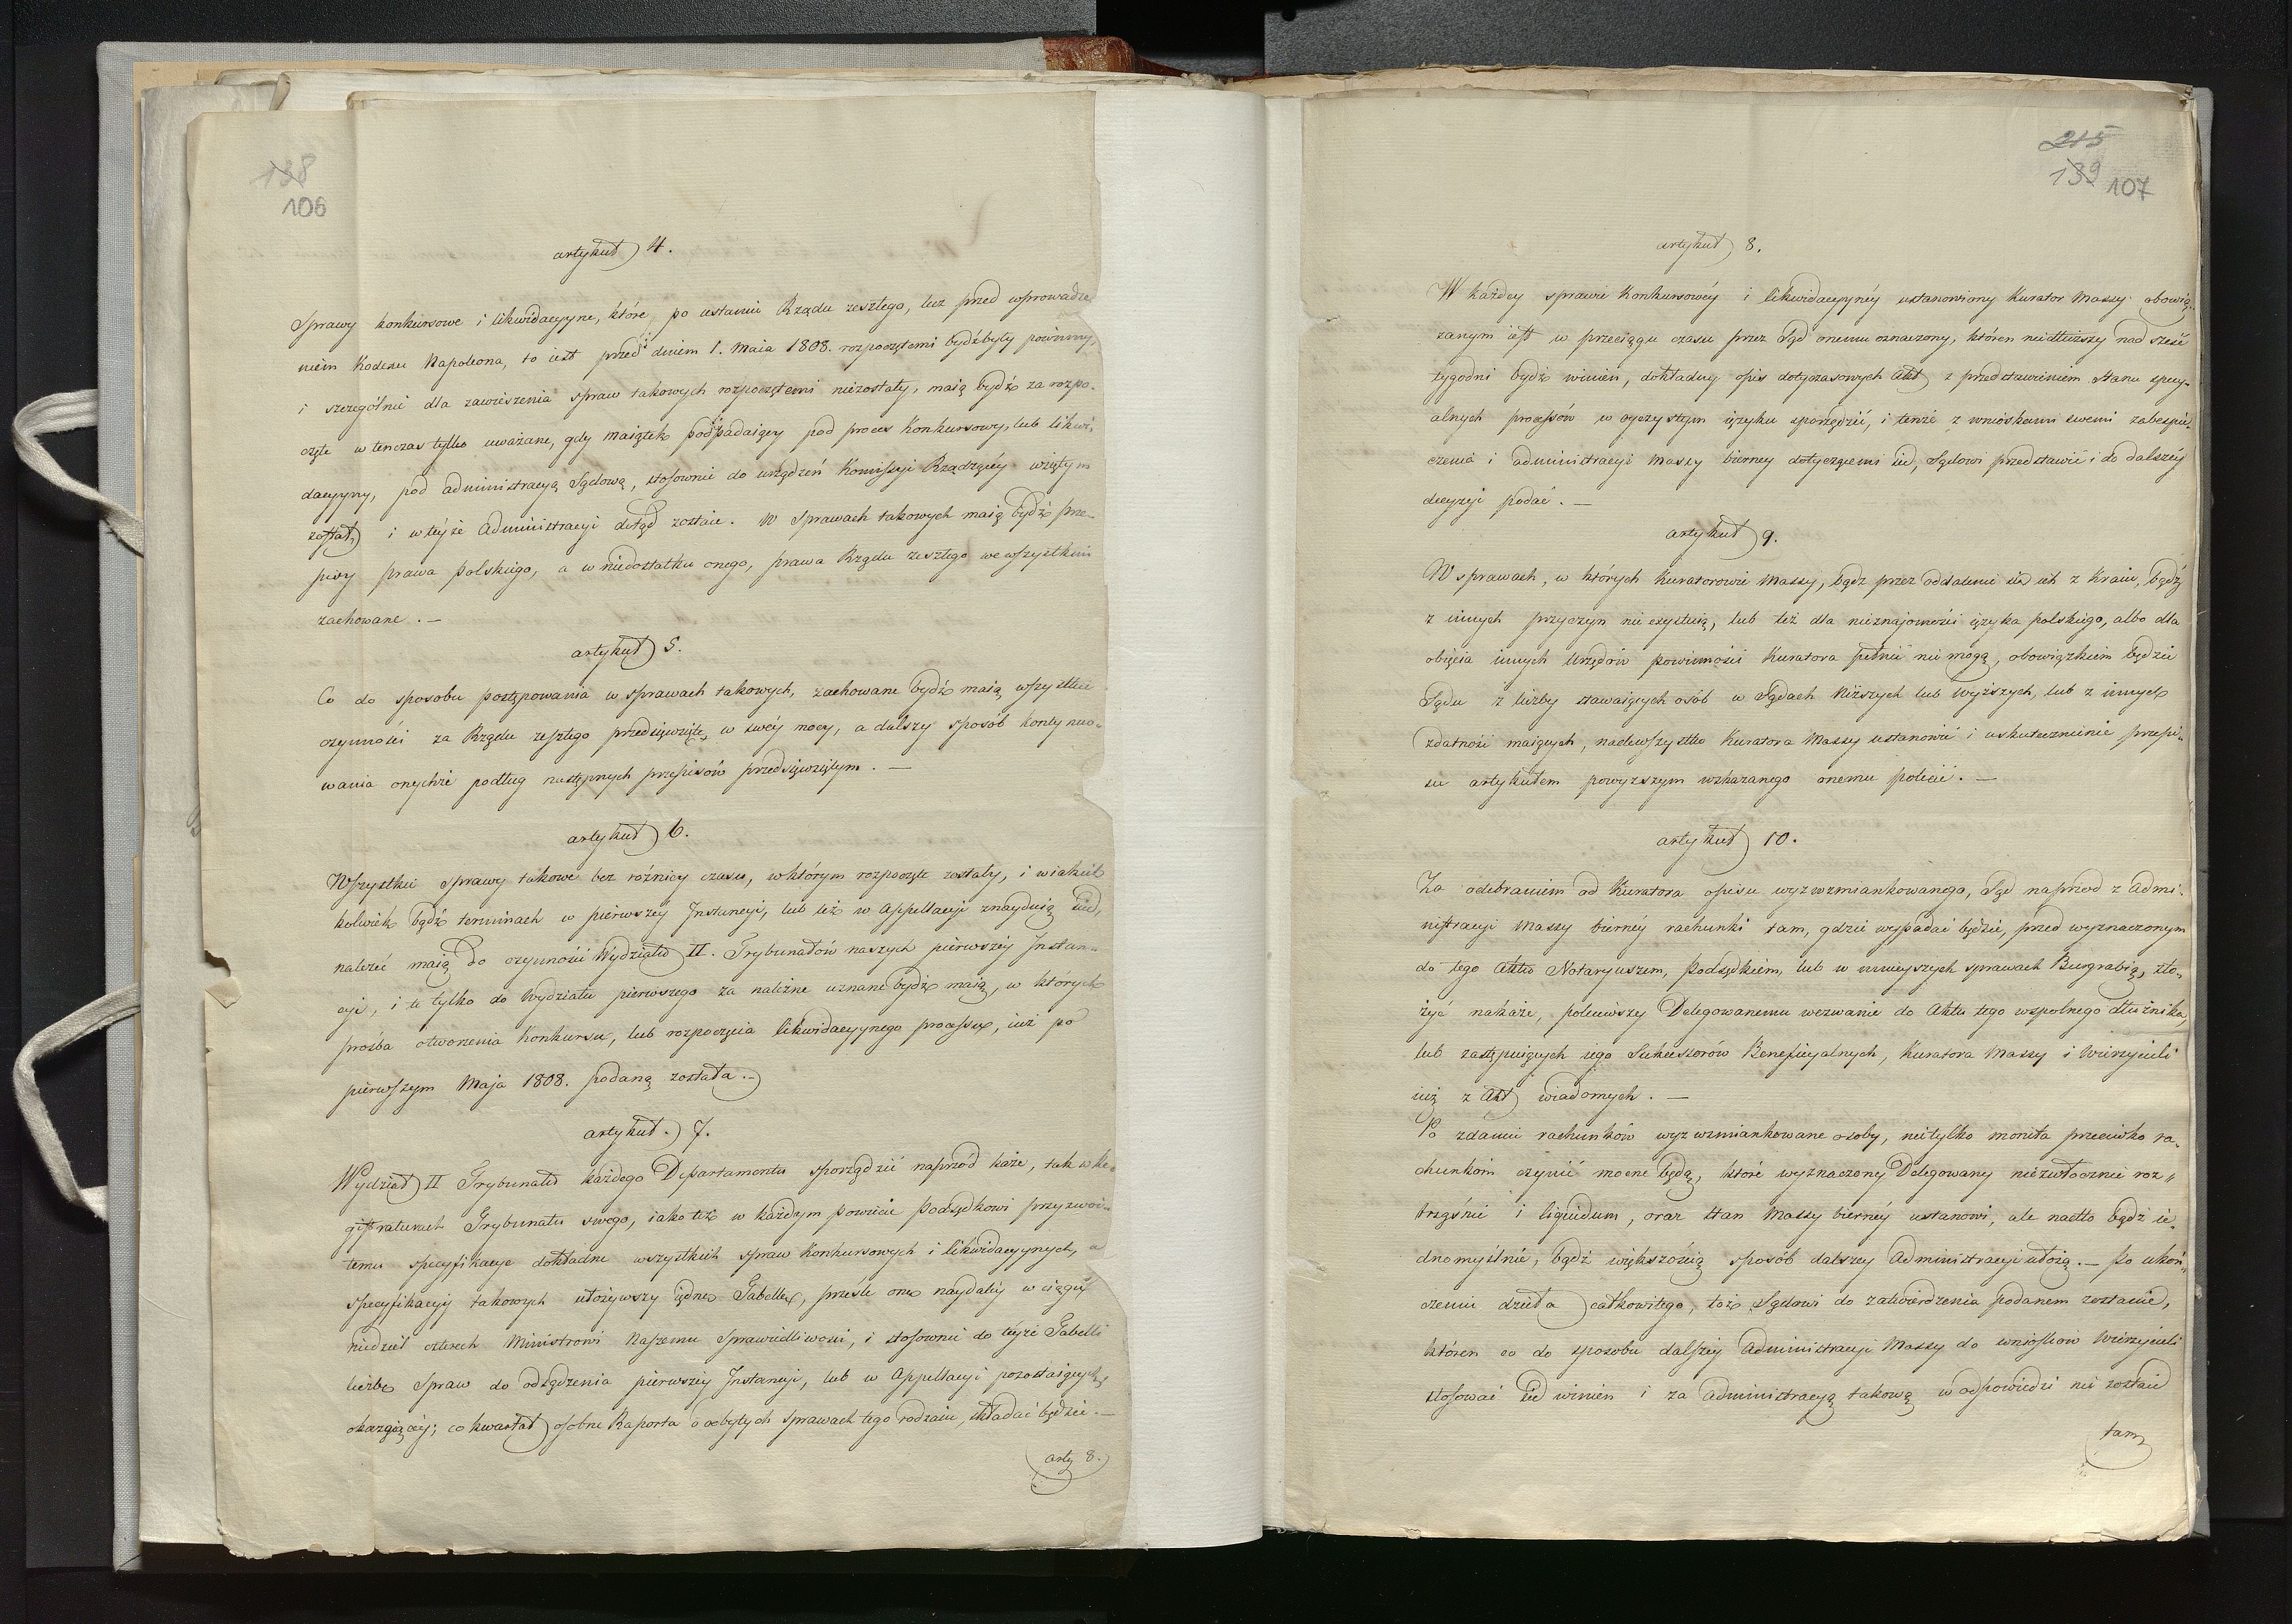 138
106
artykuł 4.
Sprawy konkursowe i likwidacyjne, które po ustaniu Rządu zeszłego, lecz przed wprowadze
niem Kodexu Napoleona, to iest przed dniem 1. Maia 1808. rozpoczętemi bydź były powinny,
i szczególnie dla zawieszenia spraw takowych rozpoczętemi niezostały, maią bydź za rozpo-
częte w tenczas tylko uważane, gdy maiątek podpadaiący pod proces Konkursowy, lub likwi-
dacyjny, pod administracyą Sądową, stosownie do urządzeń Komissyi Rządzącéy wziętym
został, i w téyże Administracyi dotąd zostaie. W Sprawach takowych maią bydź prze-
pisy prawa polskiego, a w niedostatku onego, prawa Rządu zeszłego we wszystkim
zachowane. —
artykuł 5.
Co do sposobu postępowania w sprawach takowych, zachowane bydź maią wszystkie
czynności za Rządu zeszłego przedsięwzięte, w swéy mocy, a dalszy sposób kontynuo-
wania onychże podług następnych przepisów przedsięwziętym. —
artykuł 6.
Wszystkie sprawy takowe bez różnicy czasu, w którym rozpoczęte zostały, i w iakich
kolwiek bądź terminach w pierwszéy Instancyi, lub też w Appellacyi znayduią się,
należeć maią do czynności Wydziału II. Trybunałów naszych pierwszéy Instan-
cyi, i te tylko do Wydziału pierwszego za należne uznane bydź maią, w których
prośba otworzenia Konkursu, lub rozpoczęcia likwidacyjnego processu, iuż po
pierwszym Maja 1808. podaną została. —
artykuł. 7.
Wydział II Trybunału każdego Departamentu sporządzić naprzód każe, tak w Re-
gistraturach Trybunału swego, iako też w każdym powiecie Podsędkowi przyzwoi-
temu specyfikacye dokładne wszystkich spraw Konkursowych i likwidacyjnych, a
specyfikacyi takowych ułożywszy iedną Tabellę, prześle onę naydaléy w ciągu
niedziel czterech Ministrowi Naszemu Sprawiedliwości, i stosownie do téyże Tabelli
liczbę Spraw do odsądzenia pierwszéy Instancyi, lub w Appellacyi pozostaiących,
okazuiącéy; co kwartał osobne Raporta o odbytych sprawach tego rodzaiu, składać będzie. —
arty 8.
215
139 107
artykuł 8.
W każdey sprawie Konkursowéy i likwidacyjnéy ustanowiony Kurator Massy obowią-
zanym iest w przeciągu czasu przez Sąd onemu oznaczony, któren niedłuższy nad sześć
tygodni bydź winien, dokładny opis dotychczasowych Akt z przedstawieniem Stanu specy-
alnych processów w oyczystym ięzyku sporządzić, i tenże z wnioskami swemi zabespie-
czenia i administracyi Massy bierney dotyczącemi się, Sądowi przedstawić i do dalszéy
decyzyi podać. —
artykuł 9.
W sprawach, w których Kuratorowie Massy, bądź przez oddalenie się ich z Kraiu, bądź
z innych przyczyn nie exystuią, lub też dla nieznajomości ięzyka polskiego, albo dla
obięcia innych Urzędów powinności Kuratora pełnić nie mogą, obowiązkiem będzie
Sądu z liczby stawaiących osób w Sądach Niższych lub Wyższych, lub z innych
zdatność maiących, nadewszystko Kuratora Massy ustanowić i uskutecznienie przepi-
su artykułem powyższym wskazanego onemu polecić. —
artykuł 10.
Za odebraniem od Kuratora opisu wyż wzmiankowanego, Sąd naprzód z Admi-
nistracyi Massy bierney rachunki tam, gdzie wypadać będzie, przed wyznaczonym
do tego Aktu Notaryuszem, Podsędkiem, lub w mnieyszych sprawach Burgrabią, zło-
żyć nakaże, poleciwszy Delegowanemu wezwanie do Aktu tego wspolnego dłużnika,
lub zastępuiących iego Sukcessorów Beneficyalnych, Kuratora Massy i Wierzycieli
iuż z Akt wiadomych. —
Po zdaniu rachunków wyż wzmiankowane osoby, nietylko monita przeciwko ra-
chunkom czynić mocne będą, które wyznaczony Delegowany niezwłocznie roz-
trząśnie i liquidum, oraz stan Massy bierney ustanowi, ale nadto bądź ie-
dnomyślnie, bądź większością sposób dalszey Administracyi ułożą. — Po ukoń-
czeniu dzieła całkowitego, toż Sądowi do zatwierdzenia podanem zostanie,
któren co do sposobu dalszéy Administracyi Massy do wniosków Wierzycieli
stosować się winien i za Administracyą takową w odpowiedzi nie zostaie
tam